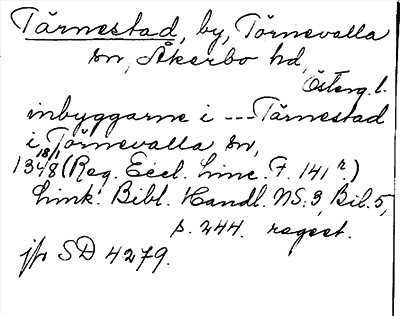 Tärnestad, by, Törnevalla
sn, Åkerbo hd,
Österg. l.
inbyggarne i --- Tärnestad
i Törnevalla sn,
18/1
1348 (Reg. Eccl. Linc. F. 141 r.)
Link. Bibl. Handl. NS: 3, Bil. 5,
s. 244. regest.
jfr SD 4279.